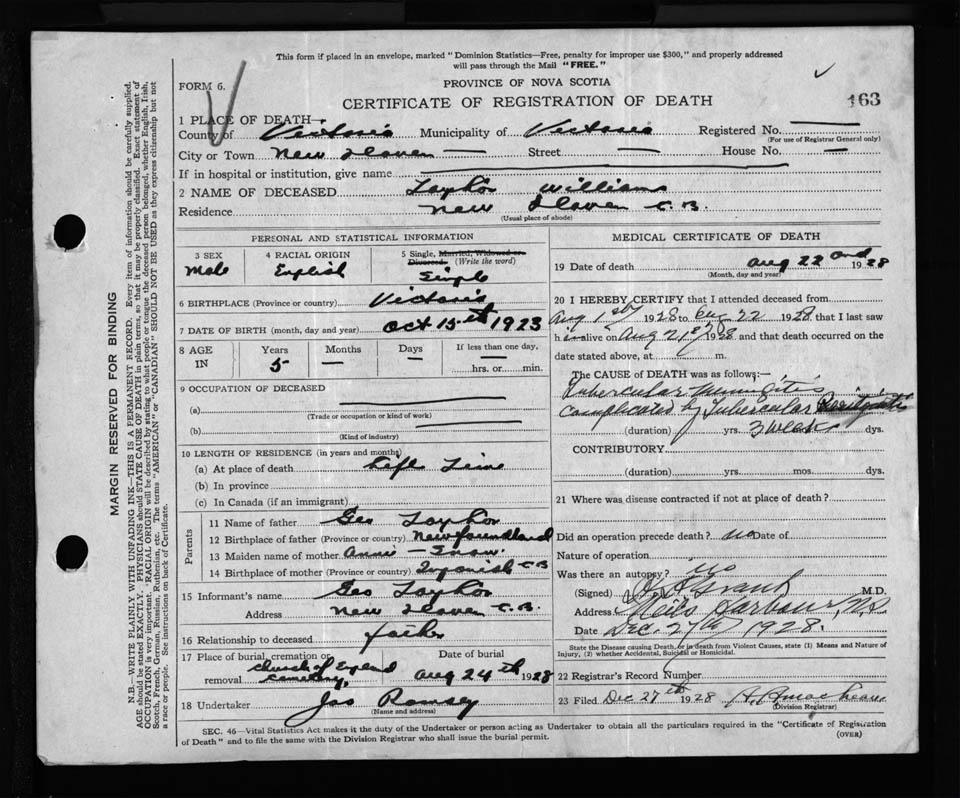 This form if placed in an envelope, marked "Dominion Statistics—Free, penalty for improper use $300," and properly addressed
will pass through the Mail "FREE."
FORM 6.
PROVINCE OF NOVA SCOTIA
CERTIFICATE OF REGISTRATION OF DEATH
163
1 PLACE OF DEATH—
County of Victoria Municipality of Victoria Registered No.
(For use of Registrar General only)
City or Town New Haven — Street — House No. —
If in hospital or institution, give name
2 NAME OF DECEASED Taylor William
Residence New Haven C.B.
(Usual place of abode)
PERSONAL AND STATISTICAL INFORMATION
3 SEX Male
4 RACIAL ORIGIN English
5 Single, Married, Widowed or Divorced. (Write the word) Single
6 BIRTHPLACE (Province or country) Victoria
7 DATE OF BIRTH (month, day and year) Oct 15th 1923
8 AGE IN Years 5 Months — Days — If less than one day, hrs. or min.
9 OCCUPATION OF DECEASED
(a)
(Trade or occupation or kind of work)
(b)
(Kind of industry)
10 LENGTH OF RESIDENCE (in years and months)
(a) At place of death Life Time
(b) In province
(c) In Canada (if an immigrant)
Parents
11 Name of father Geo Taylor
12 Birthplace of father (Province or country) Newfoundland
13 Maiden name of mother Annie — Snow
14 Birthplace of mother (Province or country) C B
15 Informant's name Geo Taylor
Address New Haven C.B.
16 Relationship to deceased father
17 Place of burial, cremation or removal Church of England Cemetery
Date of burial Aug 24th 1928
18 Undertaker Jas
(Name and address)
MEDICAL CERTIFICATE OF DEATH
19 Date of death Aug 22nd 1928
(Month, day and year)
20 I HEREBY CERTIFY that I attended deceased from
Aug 1st 1928 to Aug 22 1928, that I last saw
him alive on Aug 21st 1928 and that death occurred on the
date stated above, at m.
The CAUSE of DEATH was as follows:—
Tubercular Meningitis
Complicated by Tubercular
(duration) yrs. 3 weeks dys.
CONTRIBUTORY
(duration) yrs. mos. dys.
21 Where was disease contracted if not at place of death?
Did an operation precede death? no Date of
Nature of operation
Was there an autopsy? no
(Signed) M.D.
Address Neils Harbour, NS
Date Dec. 27th 1928.
State the Disease causing Death, or in death from Violent Causes, state (1) Means and Nature of
Injury, (2) whether Accidental, Suicidal or Homicidal.
22 Registrar's Record Number
23 Filed Dec 27th 1928
(Division Registrar)
SEC. 46—Vital Statistics Act makes it the duty of the Undertaker or person acting as Undertaker to obtain all the particulars required in the "Certificate of Registration
of Death" and to file the same with the Division Registrar who shall issue the burial permit.
(OVER)
MARGIN RESERVED FOR BINDING
N.B.—WRITE PLAINLY WITH UNFADING INK—THIS IS A PERMANENT RECORD. Every item of information should be carefully supplied.
AGE should be stated EXACTLY. PHYSICIANS should STATE CAUSE OF DEATH in plain terms, so that it may be properly classified. Exact statement of
OCCUPATION is very important. RACIAL ORIGIN will be described by stating to what people or tongue the deceased person belonged, whether English, Irish,
Scotch, French, German, Russian, Ruthenian, etc. The terms "AMERICAN" or "CANADIAN" SHOULD NOT BE USED as they express citizenship but not
a race or people. See instructions on back of Certificate.